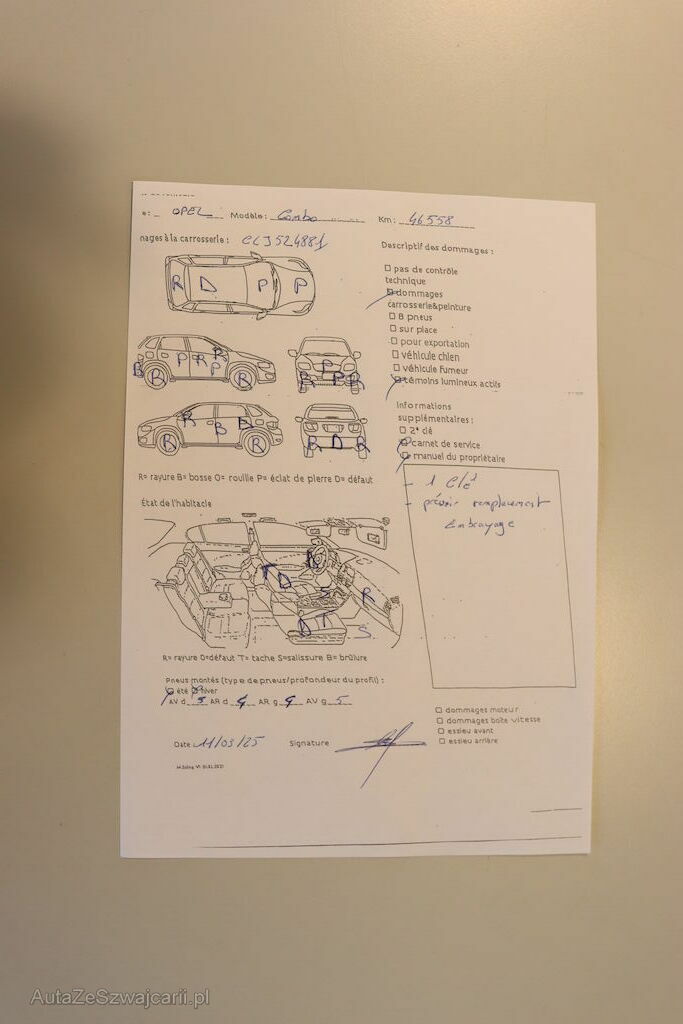 e: OPEL Modèle: Combo Km: 46558
nages à la carrosserie:
Descriptif des dommages:
R D P P
pas de contrôle
technique
dommages
carrosserie&peinture
8 pneus
sur place
pour exportation
véhicule chien
véhicule fumeur
témoins lumineux actifs
Informations
supplémentaires:
2e clé
carnet de service
manuel du propriétaire
R= rayure B= bosse O= rouille P= éclat de pierre D= défaut
- 1 clé
- prévoir remplacement
Embrayage
État de l'habitacle
R= rayure D=défaut T= tache S=salissure B= brûlure
Pneus montés (type de pneus/profondeur du profil):
été hiver
AV d. 5 AR d 4 AR g 4 AV g. 5
dommages moteur
dommages boîte vitesse
essieu avant
essieu arrière
Date 11/03/25 Signature
AutaZeSzwajcarii.pl